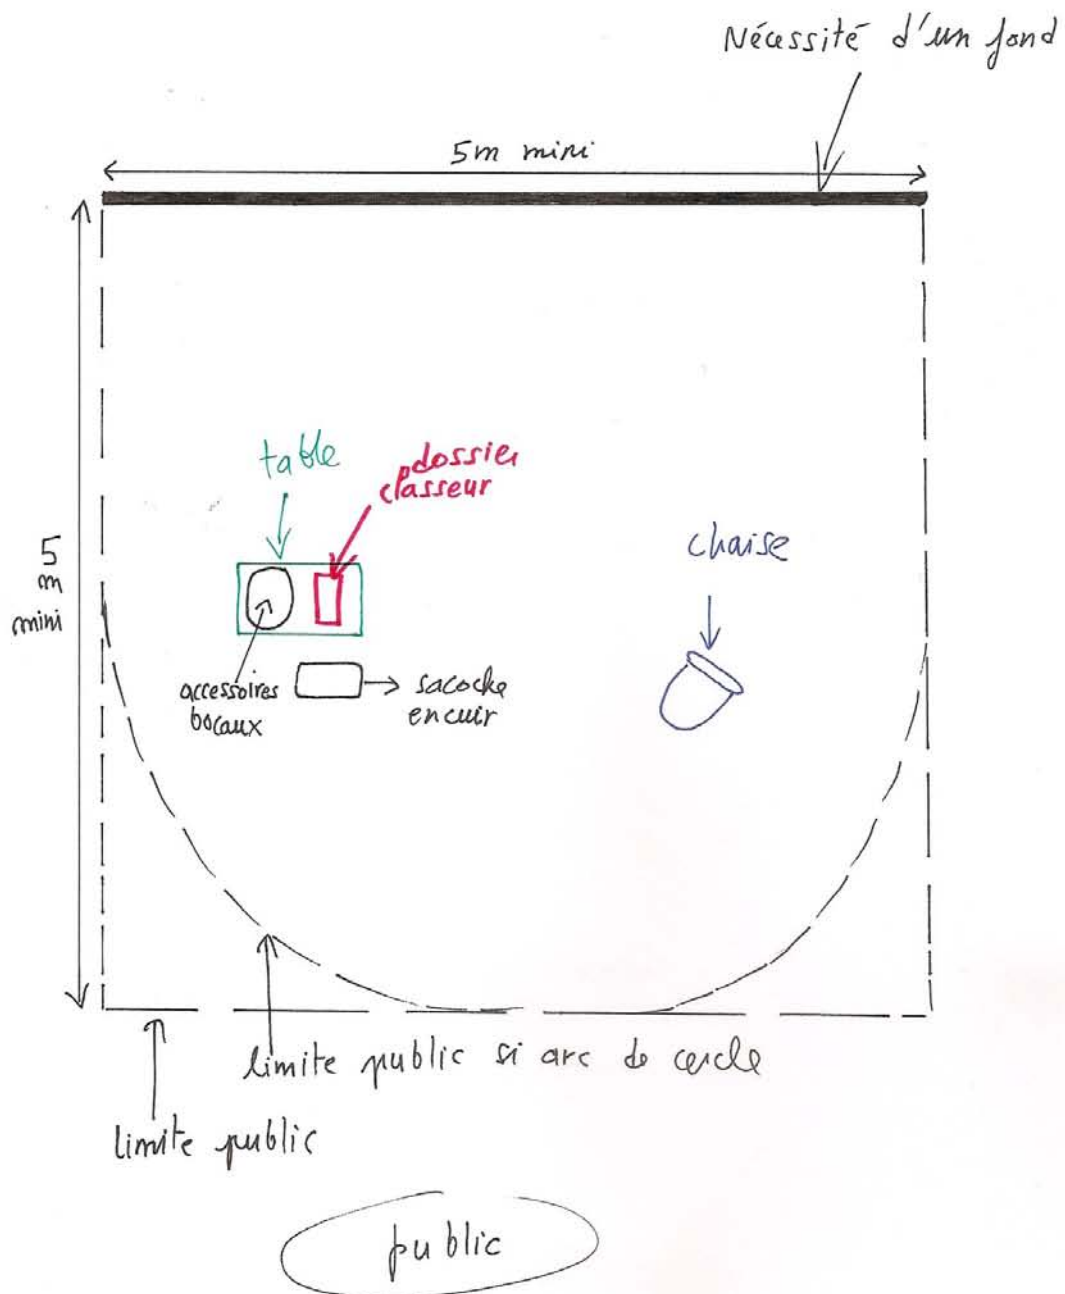 Nécessité d'un fond
5m mini
table
dossier
classeur
chaise
5
m
mini
accessoires
bocaux
sacoche
en cuir
limite public si arc de cercle
limite public
public